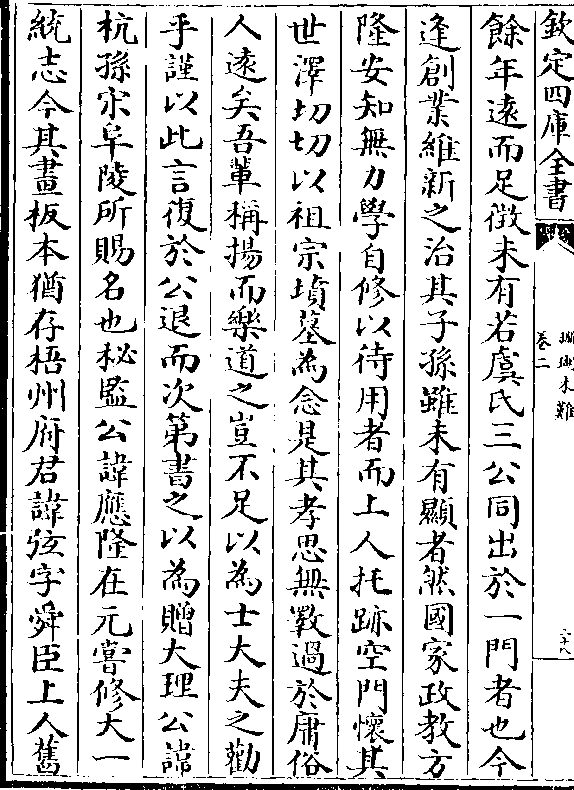 欽定四庫全書
珊瑚木難
卷二
餘年遠而足徴未有若虞氏三公同出於一門者也今
逢創業維新之治其子孫雖未有顯者然國家政教方
隆安知無力學自修以待用者而上人托跡空門懷其
世澤切切以祖宗墳墓為念是其孝思無斁過於庸俗
人逺矣吾軰稱揚而樂道之豈不足以為士大夫之勸
乎謹以此言復於公退而次第書之以為贈大理公諱
杭孫宋阜陵所賜名也秘監公諱應隆在元嘗修大一
統志今其畫板本猶存梧州府君諱弦字舜臣上人舊